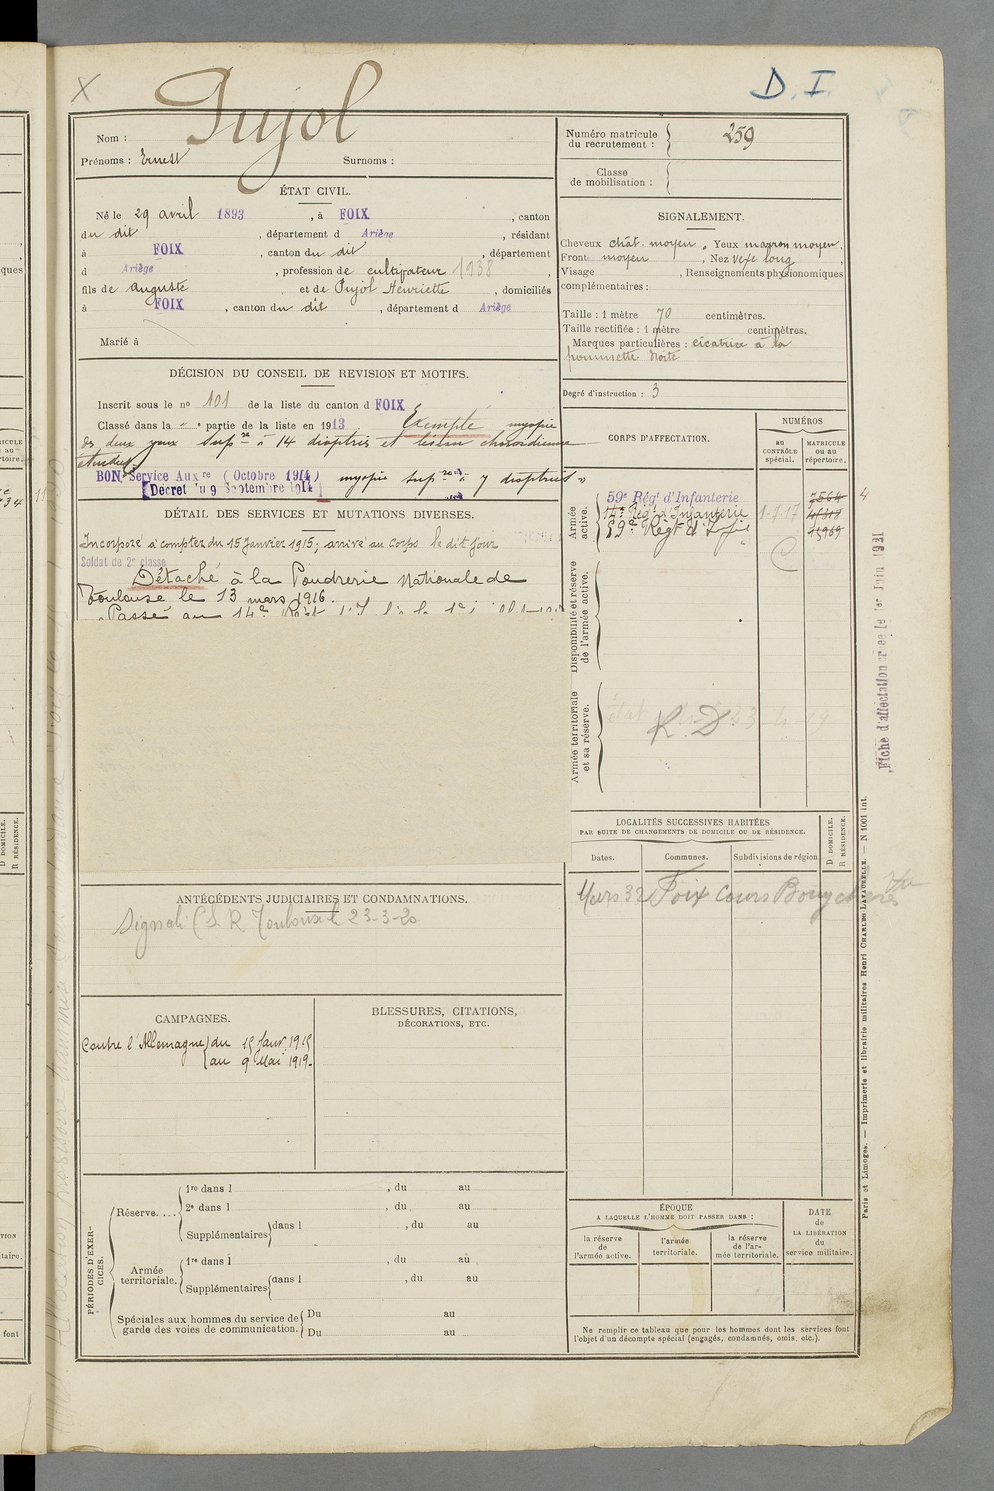 X
D. I.
Pujol
Nom :
Prénoms : Ernest Surnoms :
Numéro matricule du recrutement : 259
Classe de mobilisation :
ÉTAT CIVIL.
Né le 29 avril 1893, à FOIX, canton
du dit, département d Ariège, résidant
à FOIX, canton du dit, département
d Ariège, profession de cultivateur 1938,
fils de Auguste et de Pujol Henriette, domiciliés
à FOIX, canton du dit, département d Ariège
Marié à
SIGNALEMENT.
Cheveux chât. moyen, Yeux marron moyen,
Front moyen, Nez vexe long,
Visage , Renseignements physionomiques
complémentaires :
Taille : 1 mètre 70 centimètres.
Taille rectifiée : 1 mètre centimètres.
Marques particulières : cicatrice à la
Degré d'instruction : 3
DÉCISION DU CONSEIL DE REVISION ET MOTIFS.
Inscrit sous le nº 101 de la liste du canton d FOIX
Classé dans la " e partie de la liste en 1913. Exempté myopie
des deux yeux supre à 14 dioptries et lésion choroïdienne
étendue
BON Service Auxre (Octobre 1914) myopie supre à 7 dioptries »
Décret du 9 Septembre 1914
DÉTAIL DES SERVICES ET MUTATIONS DIVERSES.
Incorporé à compter du 15 Janvier 1915; arrivé au Corps le dit jour
Soldat de 2e classe
Détaché à la Poudrerie Nationale de
Toulouse le 13 mars 1916.
Passé au 14e Régt
CORPS D'AFFECTATION.
NUMÉROS
au CONTRÔLE spécial.
MATRICULE ou au répertoire.
Armée active.
59e Régt d'Infanterie 7564 4
14e Régt d'Infanterie 1-7-17
59e Régt d'Infie 15969
Disponibilité et réserve de l'armée active.
Armée territoriale et sa réserve.
R. D.
Fiche d'affectation créée le 1er Juin 1931
LOCALITÉS SUCCESSIVES HABITÉES
PAR SUITE DE CHANGEMENTS DE DOMICILE OU DE RÉSIDENCE.
Dates. Communes. Subdivisions de région. D DOMICILE. R RÉSIDENCE.
Mars 32 Foix Cours Bouychères
ANTÉCÉDENTS JUDICIAIRES ET CONDAMNATIONS.
Signalé C.S.R. Toulouse le 23-3-20
CAMPAGNES.
Contre l'Allemagne du 15 Janv. 1915
au 9 Mai 1919.
BLESSURES, CITATIONS,
DÉCORATIONS, ETC.
PÉRIODES D'EXERCICES.
Réserve....
1re dans l , du au
2e dans l , du au
Supplémentaires dans l , du au
Armée territoriale.
1re dans l , du au
Supplémentaires dans l , du au
Spéciales aux hommes du service de garde des voies de communication.
Du au
Du au
ÉPOQUE
A LAQUELLE L'HOMME DOIT PASSER DANS :
la réserve de l'armée active.
l'armée territoriale.
la réserve de l'armée territoriale.
DATE de LA LIBÉRATION du service militaire.
Ne remplir ce tableau que pour les hommes dont les services font
l'objet d'un décompte spécial (engagés, condamnés, omis, etc.).
Paris et Limoges. — Imprimerie et librairie militaires Henri CHARLES-LAVAUZELLE. — N 1001 int.